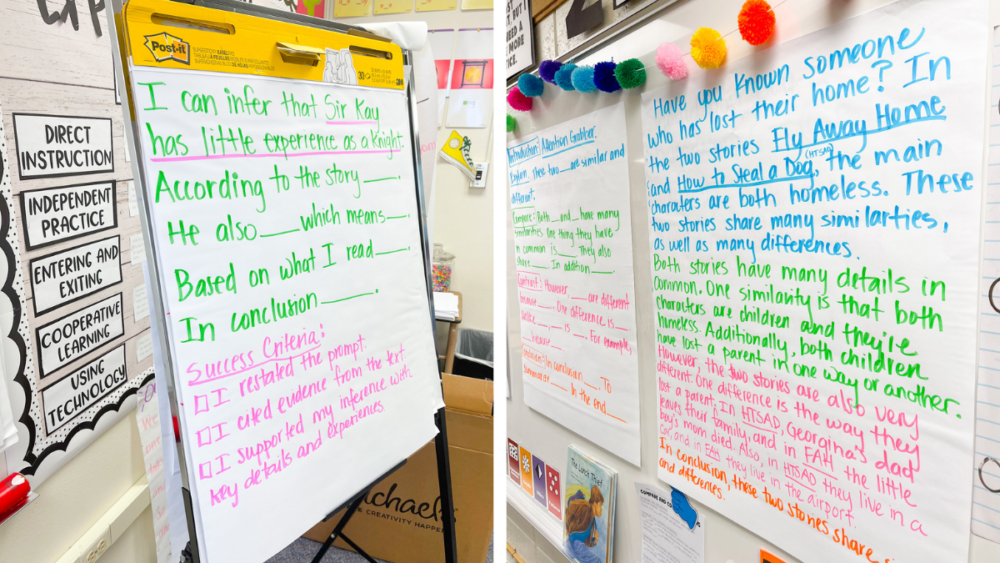 DIRECT
INSTRUCTION
INDEPENDENT
PRACTICE
ENTERING AND
EXITING
COOPERATIVE
LEARNING
USING
TECHNOLOGY
Post-it
30
3M
I can infer that Sir Kay
has little experience as a Knight.
According to the story ___.
He also ___ which means ___.
Based on what I read ___.
In conclusion ___.
Success Criteria:
I restated the prompt.
I cited evidence from the text.
I supported my inference with
key details and experiences.
Michaels
CREATIVITY HAPPENS
Introduction: Attention Grabber.
Explain, These two ___ are similar and
different.
Compare: Both ___ and ___ have many
similarities. One thing they have
in common is ___. They also
share ___. In addition ___.
Contrast: However, ___ are different
because ___. One difference is ___
___ is ___. For example,
because
Conclusion: In conclusion ___. To
summarize ___. In the end ___
Have you known someone
who has lost their home? In
the two stories Fly Away Home
and How to Steal a Dog, (HTSAD) the main
charaters are both homeless. These
two stories share many similarties,
as well as many differences.
Both stories have many details in
common. One similarity is that both
characters are children and they're
homeless. Additionally, both children
have lost a parent in one way or another.
However, the two stories are also very
different. One difference is the way they
lost a parent. In HTSAD, Georgina's dad
leaves their family, and in FAH the little
boy's mom died. Also, in HTSAD they live in a
car, and in FAH they live in the airport.
In conclusion, these two stories share
and differences.
The Lunch Thief
COMPARE AND